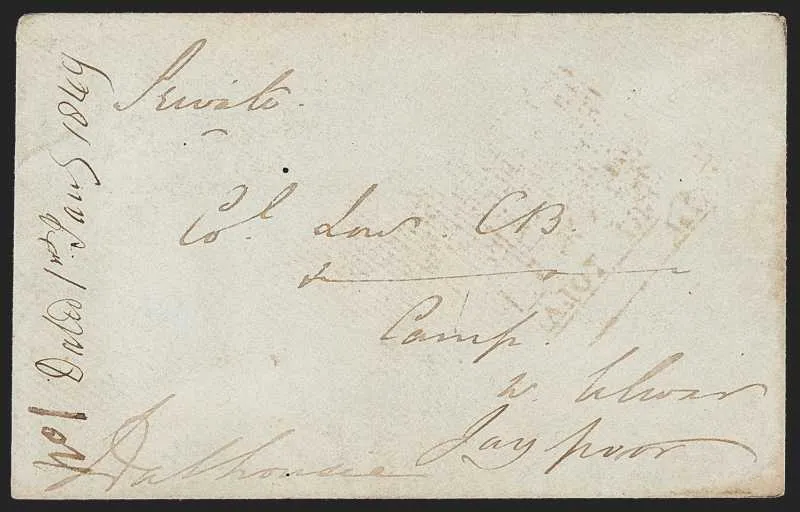 Private.
Col. Low. CB.
Camp.
Ulwar
Jaypoor
Dalhousie
No 1 Dated 1st Jany 1849